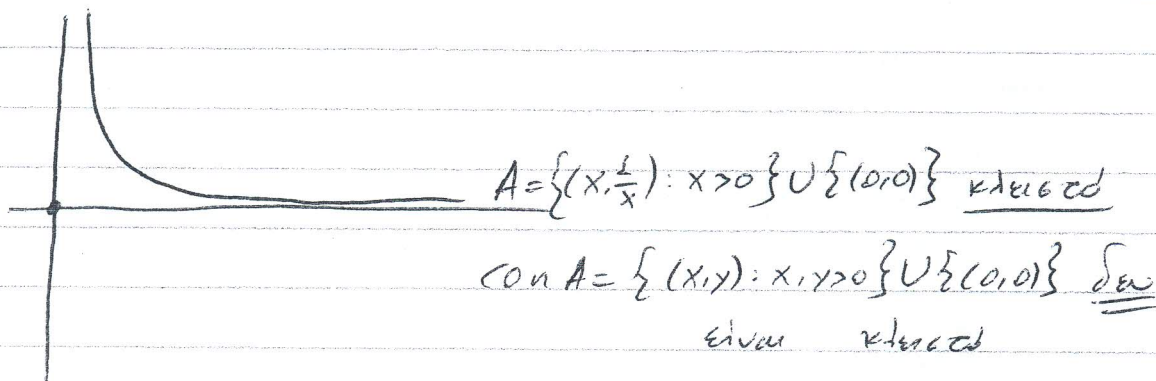 A = {(x, 1/x) : x > 0} ∪ {(0,0)} κλειστό
con A = {(x,y) : x,y > 0} ∪ {(0,0)} δεν
είναι κλειστό